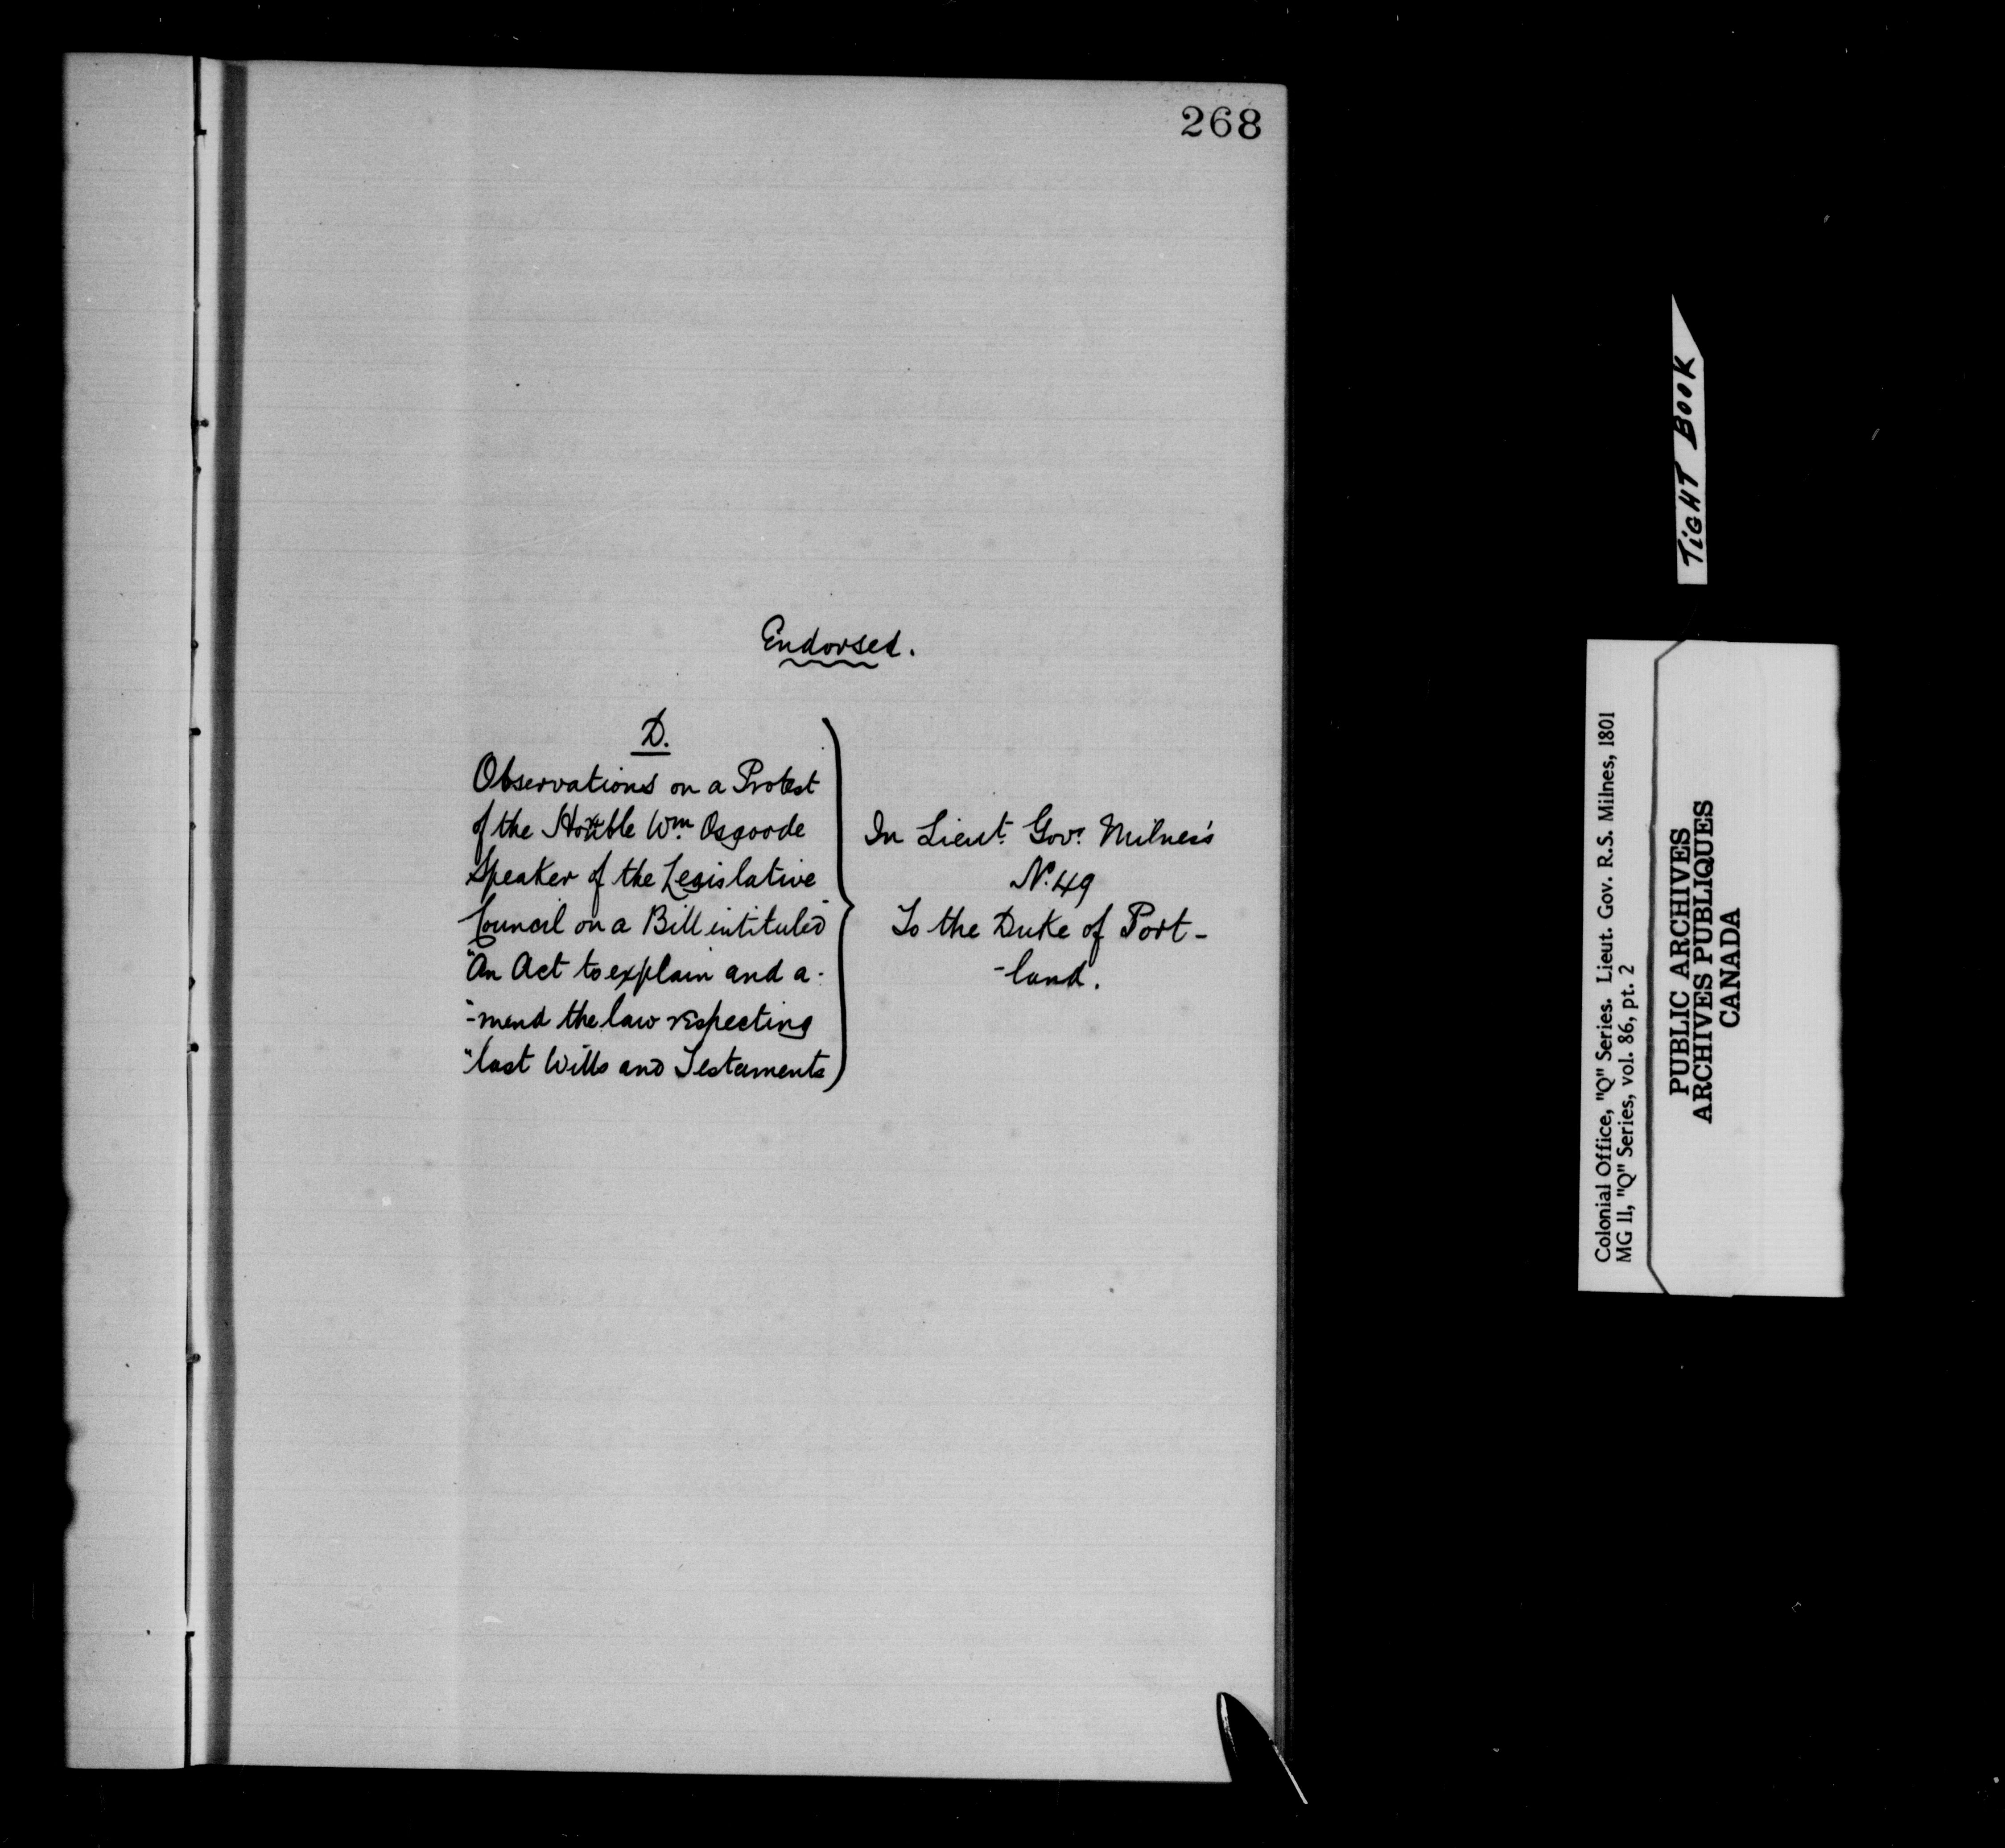 268
Endorsed.
D.
Observations on a Protest
of the Honble Wm. Osgoode
Speaker of the Legislative
Council on a Bill intituled
"An Act to explain and a-
"-mend the law respecting
"last Wills and Testaments
In Lieut. Govr. Milnes's
No. 49
To the Duke of Port-
-land.
TIGHT BOOK
Colonial Office, "Q" Series. Lieut. Gov. R.S. Milnes, 1801
MG 11, "Q" Series, vol. 86, pt. 2
PUBLIC ARCHIVES
ARCHIVES PUBLIQUES
CANADA